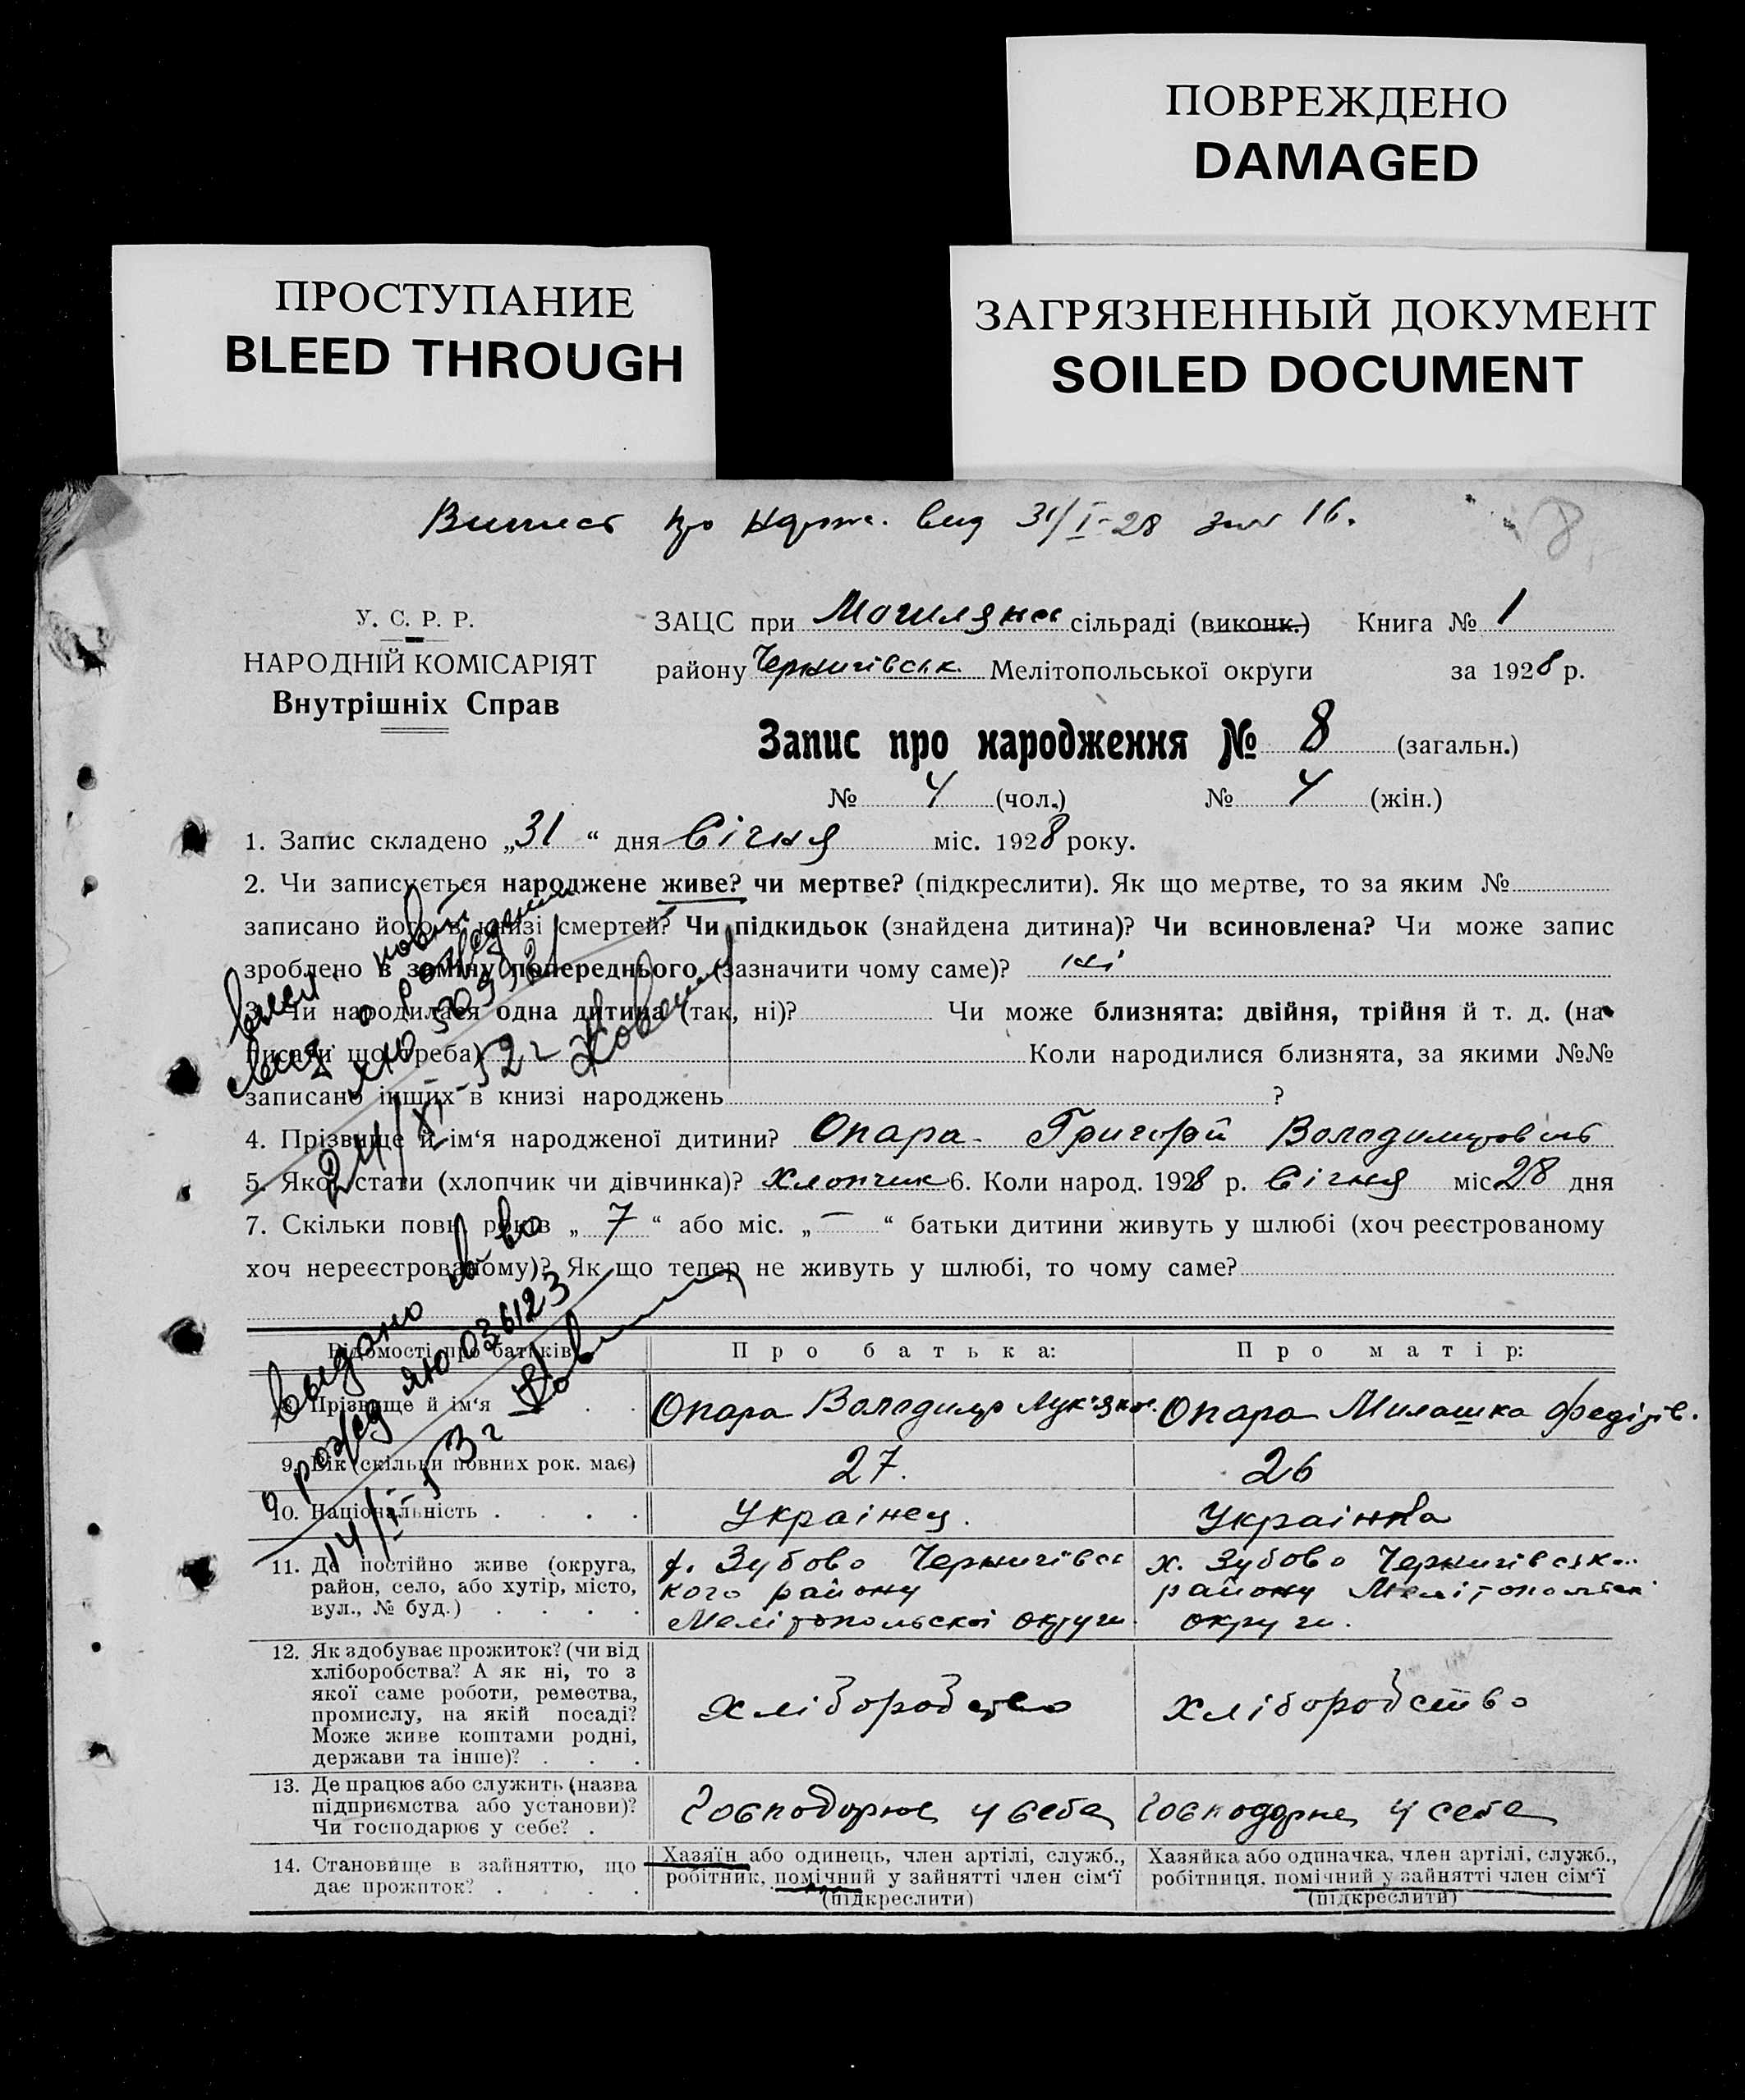 ПОВРЕЖДЕНО
DAMAGED
ПРОСТУПАНИЕ
BLEED THROUGH
ЗАГРЯЗНЕННЫЙ ДОКУМЕНТ
SOILED DOCUMENT
Випись про народж. вид 31/I-28 за № 16.
8
У. С. Р. Р.
НАРОДНІЙ КОМІСАРІЯТ
Внутрішніх Справ
ЗАЦС при Могилянск сільраді (виконк.) Книга № 1
району Чернигівськ. Мелітопольської округи за 1928 р.
Запис про народження № 8 (загальн.)
№ 4 (чол.) № 4 (жін.)
1. Запис складено „31“ дня Січня міс. 1928 року.
2. Чи записується народжене живе? чи мертве? (підкреслити). Як що мертве, то за яким №
записано його в книзі смертей? Чи підкидьок (знайдена дитина)? Чи всиновлена? Чи може запис
зроблено в заміну попереднього (зазначити чому саме)? ні
3. Чи народилася одна дитина (так, ні)? Чи може близнята: двійня, трійня й т. д. (на-
писати що треба) Коли народилися близнята, за якими №№
записано інших в книзі народжень ?
4. Прізвище й ім‘я народженої дитини? Опара Григорій Володимирович
5. Якої стати (хлопчик чи дівчинка)? Хлопчик 6. Коли народ. 1928 р. Січня міс. 28 дня
7. Скільки повн. років „7“ або міс. „—“ батьки дитини живуть у шлюбі (хоч реєстрованому
хоч нереєстрованому)? Як що тепер не живуть у шлюбі, то чому саме?
ЯЮ 509321
24/XI-52 г
выдано св-во
о рожд ЯЮ 036123
14/I-53 г
Відомості про батьків Про батька: Про матір:
8. Прізвище й ім‘я . . . Опара Володимир Лук‘янов. Опара Милашка Федірів.
9. Вік (скільки повних рок. має) 27. 26
10. Національність . . . . Украінец. Украінка
11. Де постійно живе (округа, х. Зубово Чернигівсь х. Зубово Чернигівськ..
район, село, або хутір, місто, кого району району Мелітопольскі
вул., № буд.) . . . . Мелітопольскоі округи. округи.
12. Як здобуває прожиток? (чи від
хліборобства? А як ні, то з
якої саме роботи, ремества,
промислу, на якій посаді? хліборобство хліборобство
Може живе коштами родні,
держави та інше)? . . .
13. Де працює або служить (назва
підприємства або установи)? Господарює у себе Господарює у себе
Чи господарює у себе? .
14. Становище в зайняттю, що Хазяїн або одинець, член артілі, служб., Хазяйка або одиначка, член артілі, служб.,
дає прожиток? . . . . робітник, помічний у зайнятті член сім‘ї робітниця, помічний у зайнятті член сім‘ї
(підкреслити) (підкреслити)